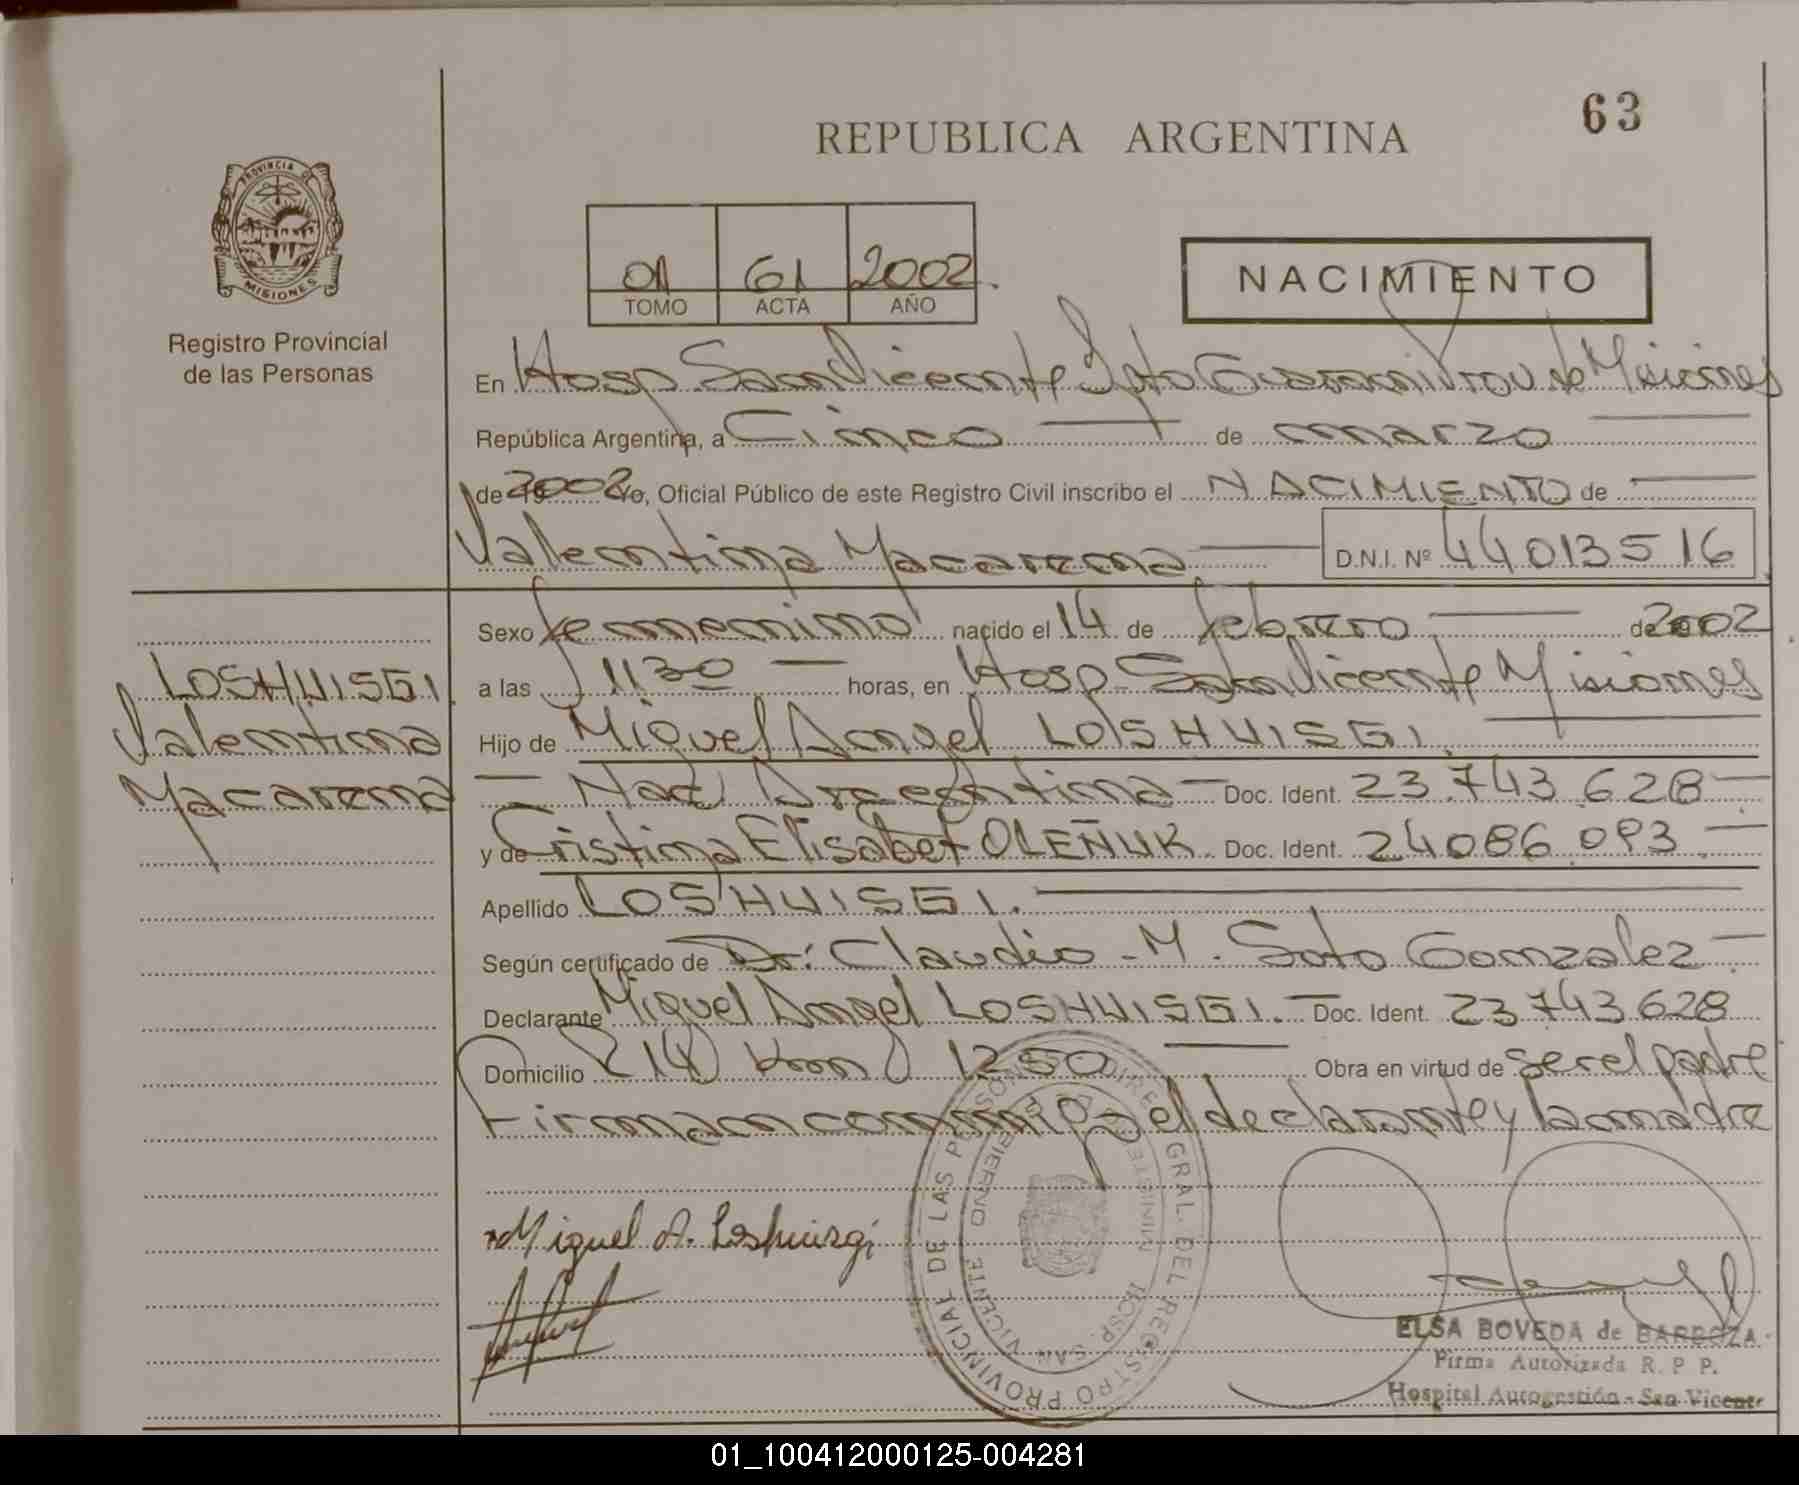 63
REPUBLICA ARGENTINA
PROVINCIA DE
MISIONES
Registro Provincial
de las Personas
01 61 2002
TOMO ACTA AÑO
NACIMIENTO
En Hosp San Vicente Dpto Guarani Prov de Misiones
República Argentina, a Cinco de marzo
de 2002 Yo, Oficial Público de este Registro Civil inscribo el NACIMIENTO de
Valentina Macarena D.N.I. Nº 44013516
LOSHUISGI
Valentina
Macarena
Sexo femenino nacido el 14 de febrero de 2002
a las 1130 horas, en Hosp San Vicente Misiones
Hijo de Miguel Angel LOSHUISGI.
Nac Argentina Doc. Ident. 23.743.628
y de Cristina Elisabet OLEÑUK Doc. Ident. 24086.093
Apellido LOSHUISGI.
Según certificado de Dr: Claudio - M. Soto Gonzalez
Declarante Miguel Angel LOSHUISGI. Doc. Ident. 23743628
Domicilio R 14 Km 1250 Obra en virtud de ser el padre
Firman conmigo el declarante y la madre
Miguel A. Loshuisgi
DIREC. GRAL. DEL REGISTRO PROVINCIAL DE LAS PERSONAS
HOSP. SAN VICENTE
ELSA BOVEDA de BARROZA
Firma Autorizada R. P P.
Hospital Autogestión - San Vicente
01_100412000125-004281